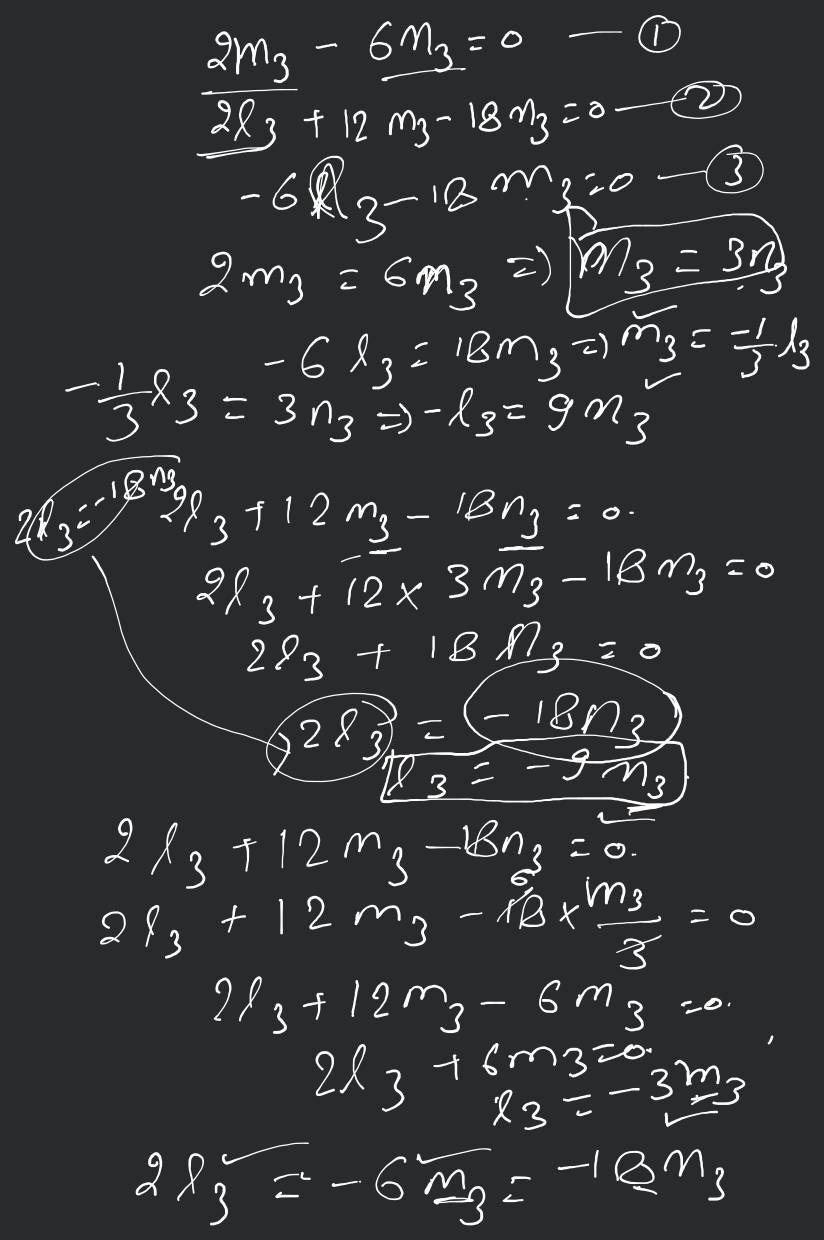 2m₃ - 6n₃ = 0 — ①
2l₃ + 12m₃ - 18n₃ = 0 — ②
-6l₃ - 18m₃ = 0 — ③
2m₃ = 6n₃ => m₃ = 3n₃
-6l₃ = 18m₃ => m₃ = -1/3 l₃
-1/3 l₃ = 3n₃ => -l₃ = 9n₃
2l₃ = -18n₃
2l₃ + 12m₃ - 18n₃ = 0.
2l₃ + 12 × 3n₃ - 18n₃ = 0
2l₃ + 18n₃ = 0
2l₃ = -18n₃
l₃ = -9n₃
2l₃ + 12m₃ - 18n₃ = 0.
2l₃ + 12m₃ - 18 6 × m₃/3 = 0
2l₃ + 12m₃ - 6m₃ = 0.
2l₃ + 6m₃ = 0.
l₃ = -3m₃
2l₃ = -6m₃ = -18n₃